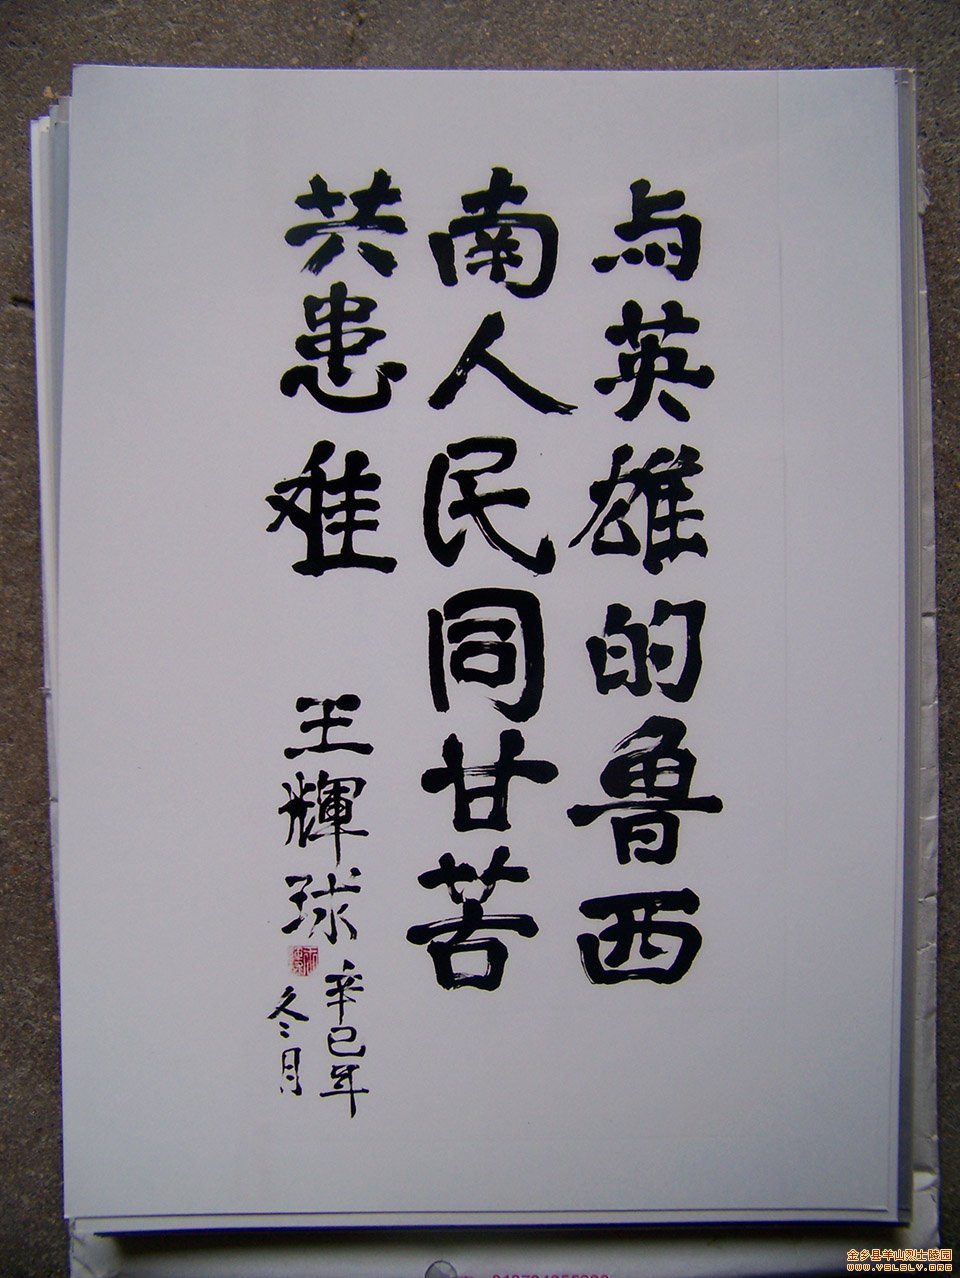 与英雄的鲁西
南人民同甘苦
共患难
王輝球
辛巳年
冬月
金乡县羊山烈士陵园
WWW.YSLSLY.ORG